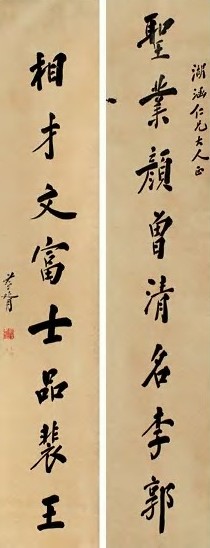 仁兄大人正
聖業顏曾清名李郭
相才文富士品裴王